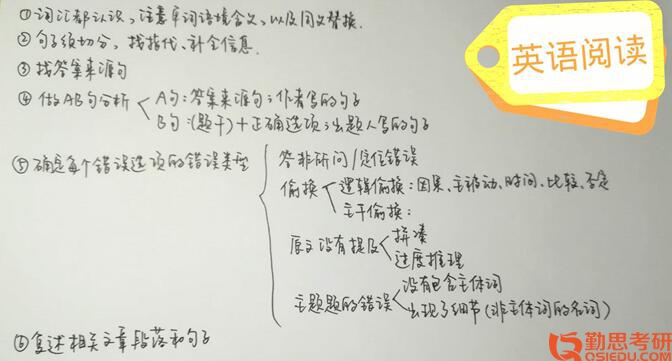 ①词汇都认识，注意单词语境含义，以及同义替换.
②句子级切分，找指代、补全信息.
英语阅读
③找答案来源句
④做AB句分析
A句：答案来源句；作者写的句子
B句：(题干)+正确选项；出题人写的句子
⑤确定每个错误选项的错误类型
答非所问/定位错误
偷换
逻辑偷换：因果、主被动、时间、比较、否定
主干偷换：
原文没有提及
拼凑
过度推理
主题题的错误
没有包含主体词
出现了细节(非主体词的名词)
⑥复述相关文章段落和句子
勤思考研
QSIEDU.COM